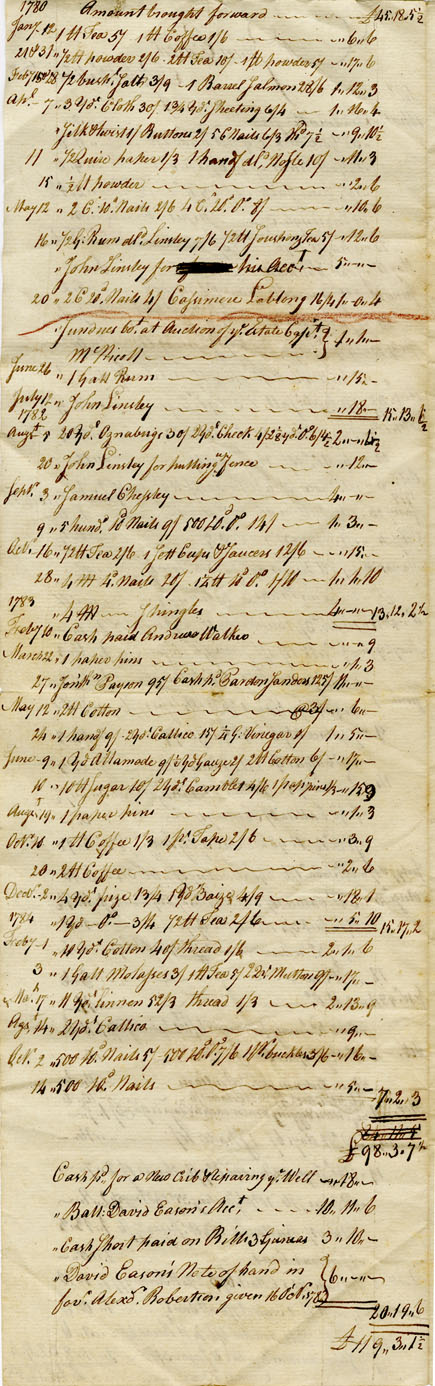 1780 Amount brought forward — £45.18.5½
Jany. 12 " 1 lb Tea 5/ 1 lb Coffee 1/6 — " 6 " 6
21 & 31 " ½ lb powder 2/6 2 lb Tea 10/ 1 lb powder 5/ " 17 " 6
Feby 15 & 28 ½ bush. Salt 3/9 1 Barrel Salmon 28/6 1 " 12 " 3
Apl. 7 " 3 Yds. Cloth 30/ 1¾ Yds. Sheeting 6/4 — 1 " 16 " 4
" Silk & twist 1/ Buttons 2/ 5 C Nails 6/3 7½ " 9 " 10½
11 " ½ Quire paper 1/3 1 hand 10/ — " 11 " 3
15 " ½ lb powder — " 2 " 6
May 12 " 2 C. 10d. Nails 2/6 4 C. 20d. Do. 8/ — " 10 " 6
16 " ½ G. Rum dd. Linsley 7/6 ½ lb Souchong Tea 5/ " 12 " 6
" John Linsley for his Acct. 5 " — " —
20 " 2 C 20d. Nails 4/ Casimere 16/4 1 " 0 " 4
" Sundries bot. at Auction of ye. Estate Capt. } 1 " 1 " —
June 26 " 1 Gall Rum — " 15 " —
July 12 " John Linsley — " 18 " — 15 " 13 " 1½
1782
Augt. 5 20 Yds. Oznabrigs 30/ 2 Yds. Check 4/ 2 " — " 4½
20 " John Linsley for putting up Fence — " 12 " —
Septr. 3 " Samuel Chessley — 4 " — " —
9 " 5 hund. 10d. Nails 9/ 500 20d. Do. 14/ — 1 " 3 " —
Octr. 16 " ½ lb Tea 2/6 1 Sett Cups & Saucers 12/6 — " 15 " —
28 " 4 M 4d. Nails 20/ 4d. Do. 1/10 — 1 " 1 " 10
1783 " 4 M Shingles — 4 " — " — 13 " 12 " 2½
Feby 10 " Cash paid Andrew Walker — " " 9
March 22 " 1 paper pins — " 1 " 3
27 " Jonth. Payson 95/ Cash pd. Pardon Sanders 125/ 11 " — " —
May 12 " 2 lb Cotton — @ 3/ " 6 " —
24 " 1 hand 9/ 2 Yds. Callico 15/ ¼ G. Vinegar 1/ 1 " 5 " —
June 9 " 1 Yd. Allamode 9/ ½ Yd. Gauze 2/ 2 lb Cotton 6/ " 17 " —
10 " 10 lb Sugar 10/ 2 Yds. Camblet 4/6 1 paper pins " 15 " 9
Augt. 19 " 1 paper pins — " 1 " 3
Octr. 16 " 1 lb Coffee 1/3 1 ps. Tape 2/6 — " 3 " 9
20 " 2 lb Coffee — " 2 " 6
Decr. 2 " 4 Yds. frize 13/4 1 Yd. Baize 4/9 — " 18 " 1
1784 " 1 Yd. Do. 3/4 ½ lb Tea 2/6 — " 5 " 10 15 " 17 " 2
Feby 1 " 11 Yds. Cotton 40/ thread 1/6 — 2 " 1 " 6
3 " 1 Gall Molasses 3/ 1 lb Tea 5/ Mutton 9/ " 17 " —
Mar. 17 " 11 Yds. Linnen 52/3 thread 1/3 — 2 " 13 " 9
Apr. 14 " 2 Yds. Callico — " 9 " —
Octr. 2 " 500 10d. Nails 5/ 500 20d. Do. 7/6 1 Pr. buckles 3/6 " 16 " —
14 " 500 10d. Nails — " 5 " —
7 " 2 " 3
£98 " 3 " 7½
Cash pd. for a New Crib & Repairing ye. Well " 18 " —
" Ball. David Eason's Acct. — 10 " 11 " 6
" Cash Short paid on Bill 3 Guineas 3 " 10 " —
" David Eason's Note of hand in } 6 " — " —
favr. Alexr. Robertson given 16 Octr. 178
20 " 19 " 6
£119 " 3 " 1½